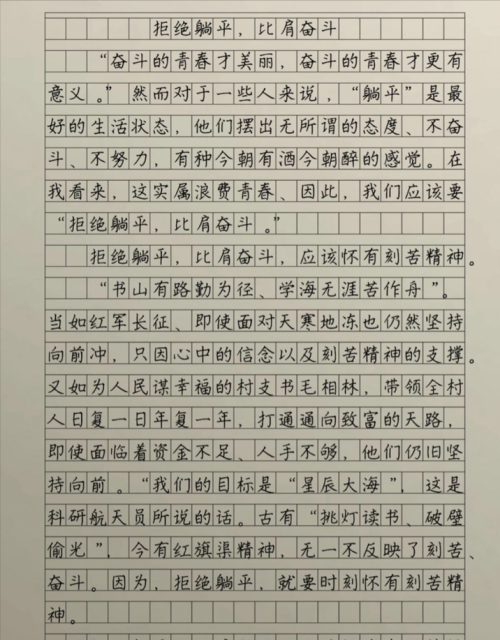 拒绝躺平，比肩奋斗
“奋斗的青春才美丽，奋斗的青春才更有
意义。”然而对于一些人来说，“躺平”是最
好的生活状态，他们摆出无所谓的态度、不奋
斗、不努力，有种今朝有酒今朝醉的感觉。在
我看来，这实属浪费青春、因此，我们应该要
“拒绝躺平，比肩奋斗。”
拒绝躺平，比肩奋斗，应该怀有刻苦精神。
“书山有路勤为径、学海无涯苦作舟”。
当如红军长征、即使面对天寒地冻也仍然坚持
向前冲，只因心中的信念以及刻苦精神的支撑。
又如为人民谋幸福的村支书毛相林，带领全村
人日复一日年复一年，打通通向致富的天路，
即使面临着资金不足、人手不够，他们仍旧坚
持向前。“我们的目标是“星辰大海”，这是
科研航天员所说的话。古有“挑灯读书、破壁
偷光”，今有红旗渠精神，无一不反映了刻苦、
奋斗。因为，拒绝躺平，就要时刻怀有刻苦精
神。